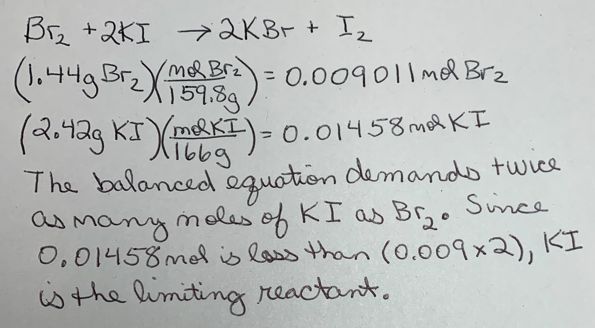 Br₂ + 2KI → 2KBr + I₂
(1.44g Br₂)(mol Br₂/159.8g) = 0.009011 mol Br₂
(2.42g KI)(mol KI/166g) = 0.01458 mol KI
The balanced equation demands twice
as many moles of KI as Br₂. Since
0.01458 mol is less than (0.009×2), KI
is the limiting reactant.